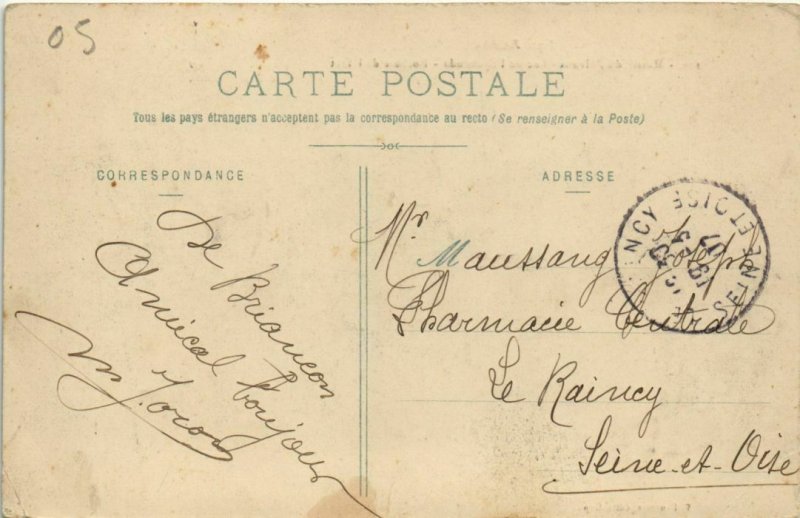 05
CARTE POSTALE
Tous les pays étrangers n'acceptent pas la correspondance au recto (Se renseigner à la Poste)
CORRESPONDANCE
De Briançon
Amical Bonjour
ADRESSE
Mr Maussang Joseph
Pharmacie Centrale
Le Raincy
Seine-et-Oise
NCY SEINE ET OISE
07